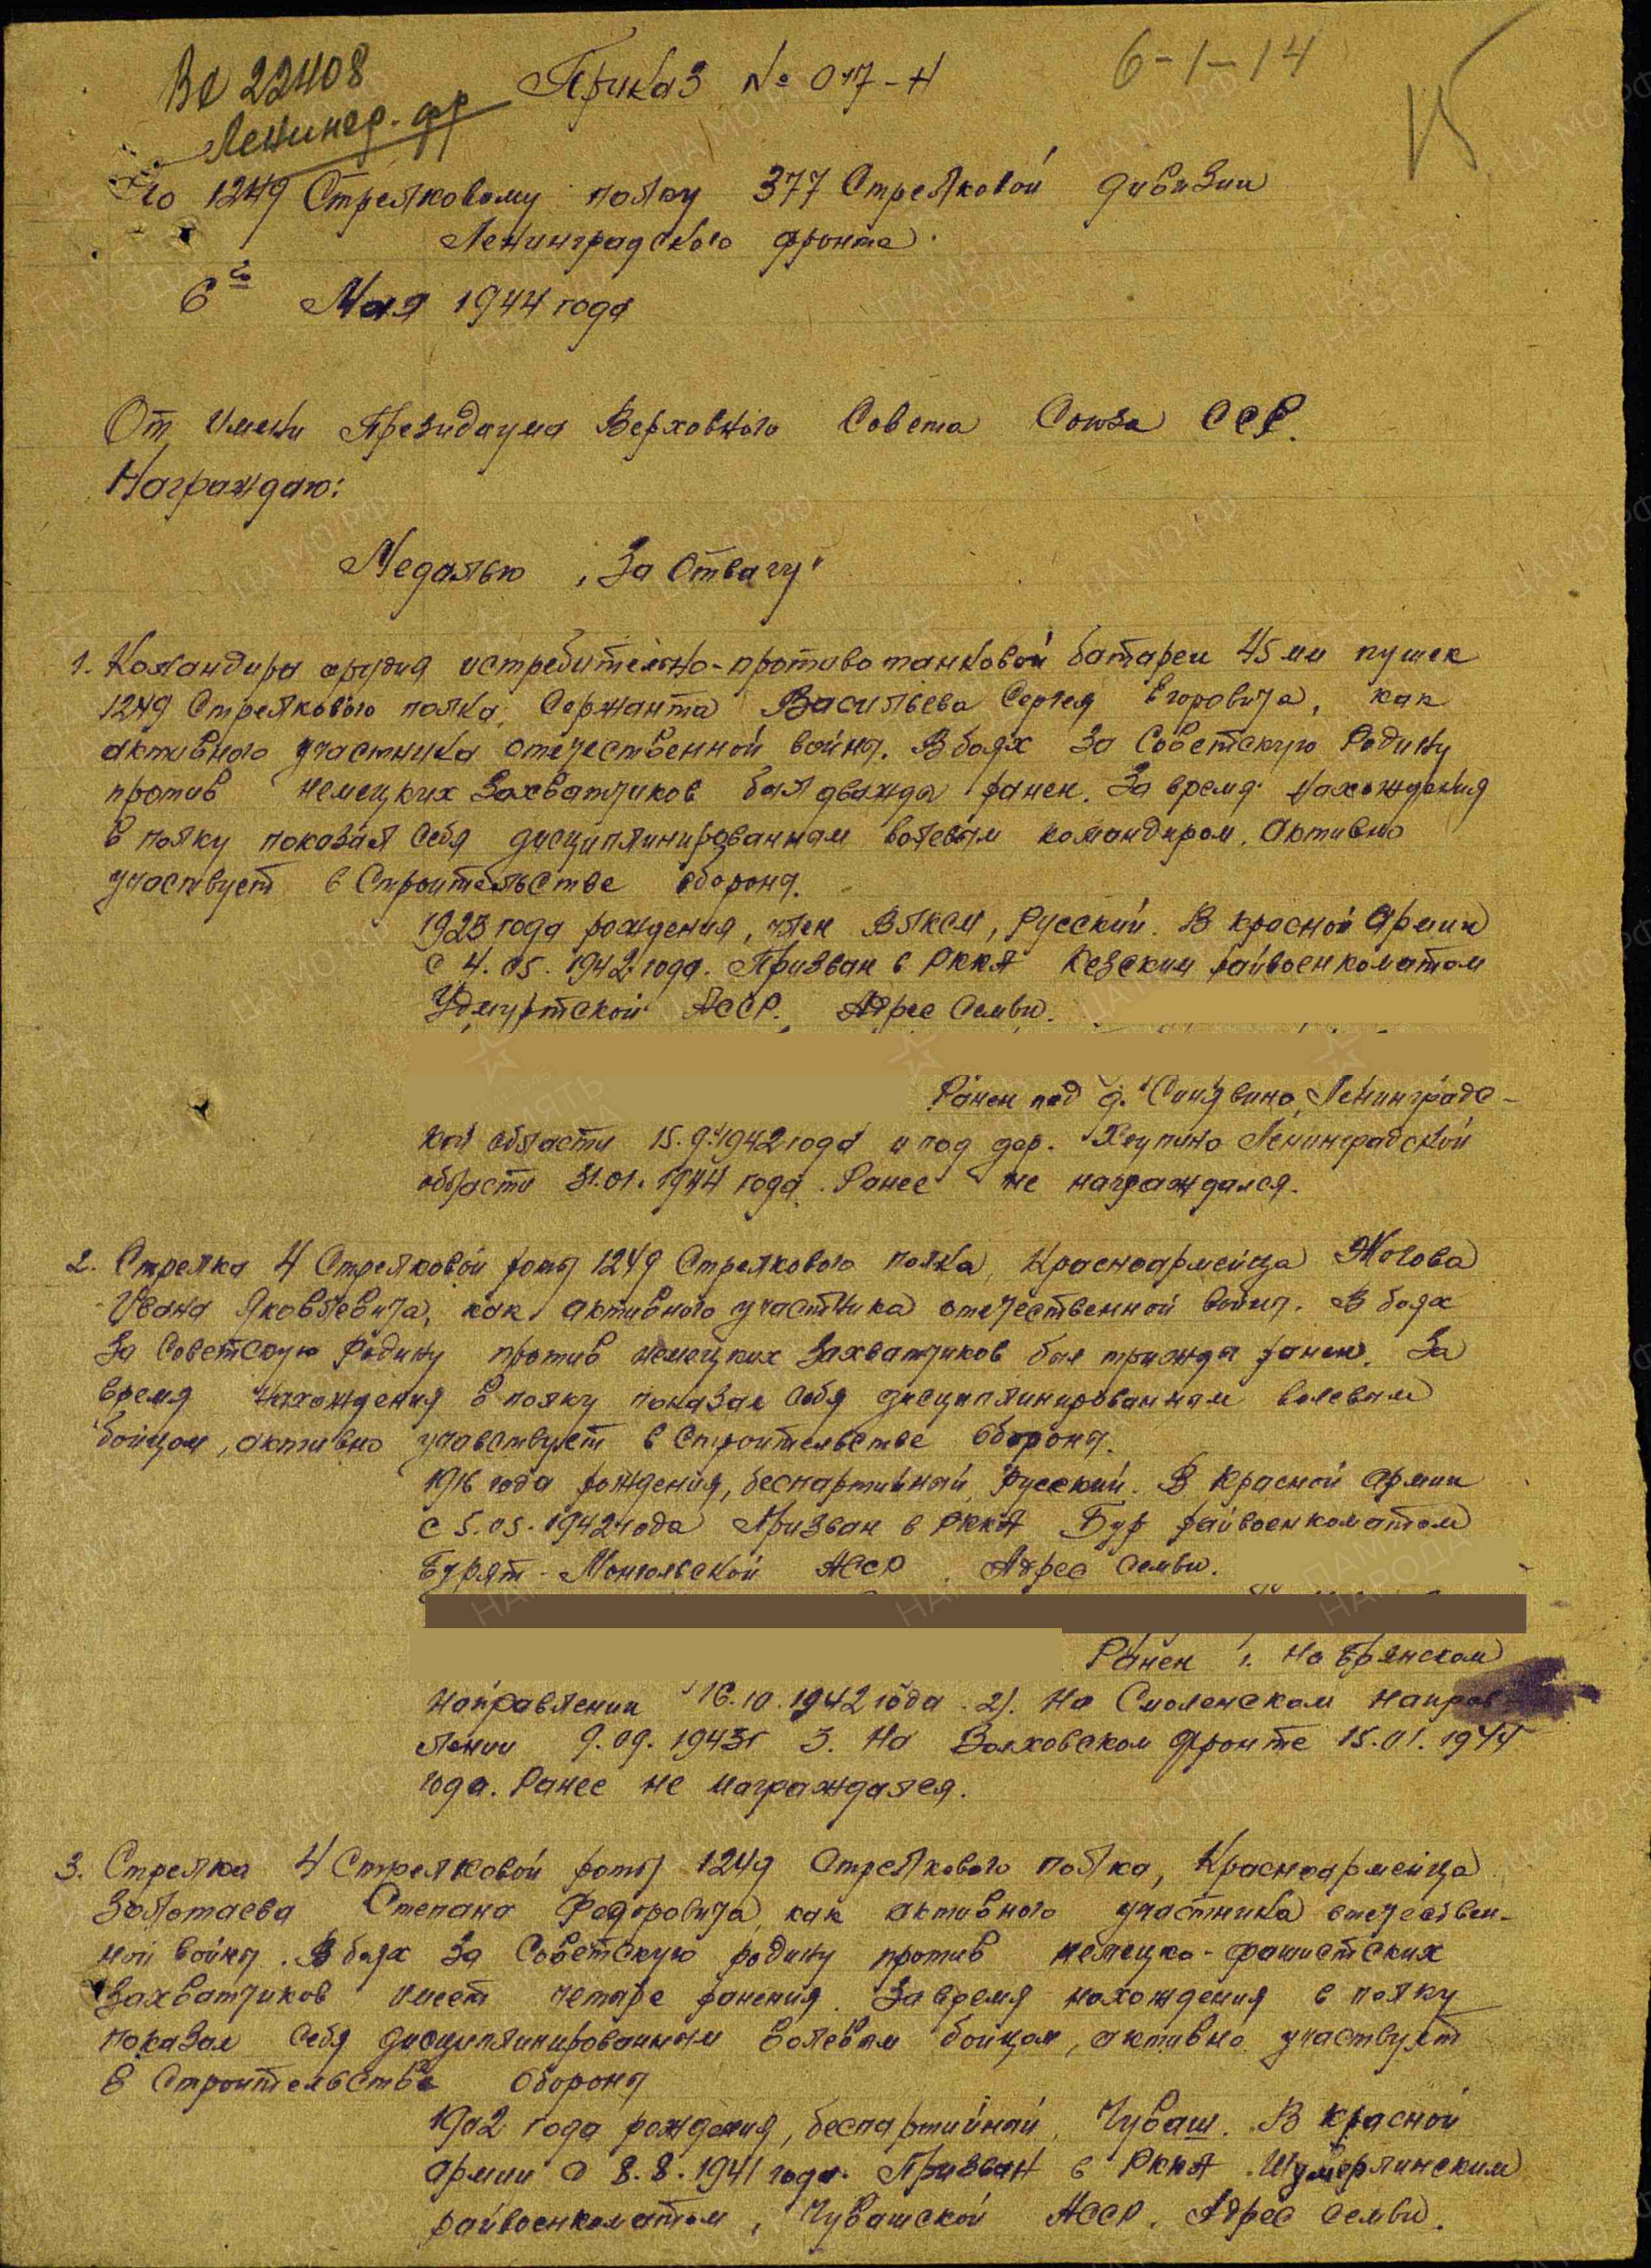 Вс 22408
Ленингр. фр
6-1-14
15
Приказ № 017-Н
По 1249 Стрелковому полку 377 Стрелковой дивизии
Ленинградского фронта.
6го Мая 1944 года
От Имени Президиума Верховного Совета Союза ССР.
Награждаю:
Медалью "За Отвагу"
1. Командира орудия истребительно-противотанковой батареи 45 мм пушек
1249 Стрелкового полка, Сержанта Васильева Сергея Егоровича, как
активного участника отечественной войны. В боях за Советскую Родину
против немецких захватчиков был дважды ранен. За время нахождения
в полку показал себя дисциплинированным волевым командиром. Активно
участвует в Строительстве обороны.
1923 года рождения, член ВЛКСМ, Русский. В Красной Армии
с 4.05.1942 года. Призван в РККА Кезским райвоенкоматом
Удмуртской АССР. Адрес Семьи.
Ранен под д. Синявино, Ленинградс-
кой области 15.9.1942 года и под дер. Ленинградской
области 31.01.1944 года. Ранее не награждался.
2. Стрелка 4 Стрелковой роты 1249 Стрелкового полка, Красноармейца Жогова
Ивана Яковлевича, как активного участника отечественной войны. В боях
За Советскую Родину против немецких захватчиков был трижды ранен. За
время нахождения в полку показал себя дисциплинированным волевым
бойцом, активно учавствует в Строительстве Обороны.
1916 года рождения, беспартийный, Русский. В Красной Армии
с 5.05.1942 года Призван в РККА Бур райвоенкоматом
Бурят-Монгольской АССР. Адрес Семьи.
Ранен 1. На Брянском
направлении 16.10.1942 года. 2). На Смоленском направ-
лении 9.09.1943г 3. На Волховском Фронте 15.01.1944
года. Ранее не награждался.
3. Стрелка 4 Стрелковой роты 1249 Стрелкового полка, Красноармейца
Золотаева Степана Федоровича, как активного участника отечествен-
ной войны. В боях за Советскую родину против немецко-фашистских
захватчиков имеет четыре ранения. За время нахождения в полку
показал себя дисциплинированным волевым бойцом, активно участвует
в Строительстве Обороны
1902 года рождения, беспартийный, Чуваш. В Красной
Армии с 8.8.1941 года. Призван в РККА Шумерлинским
райвоенкоматом, Чувашской АССР. Адрес Семьи.